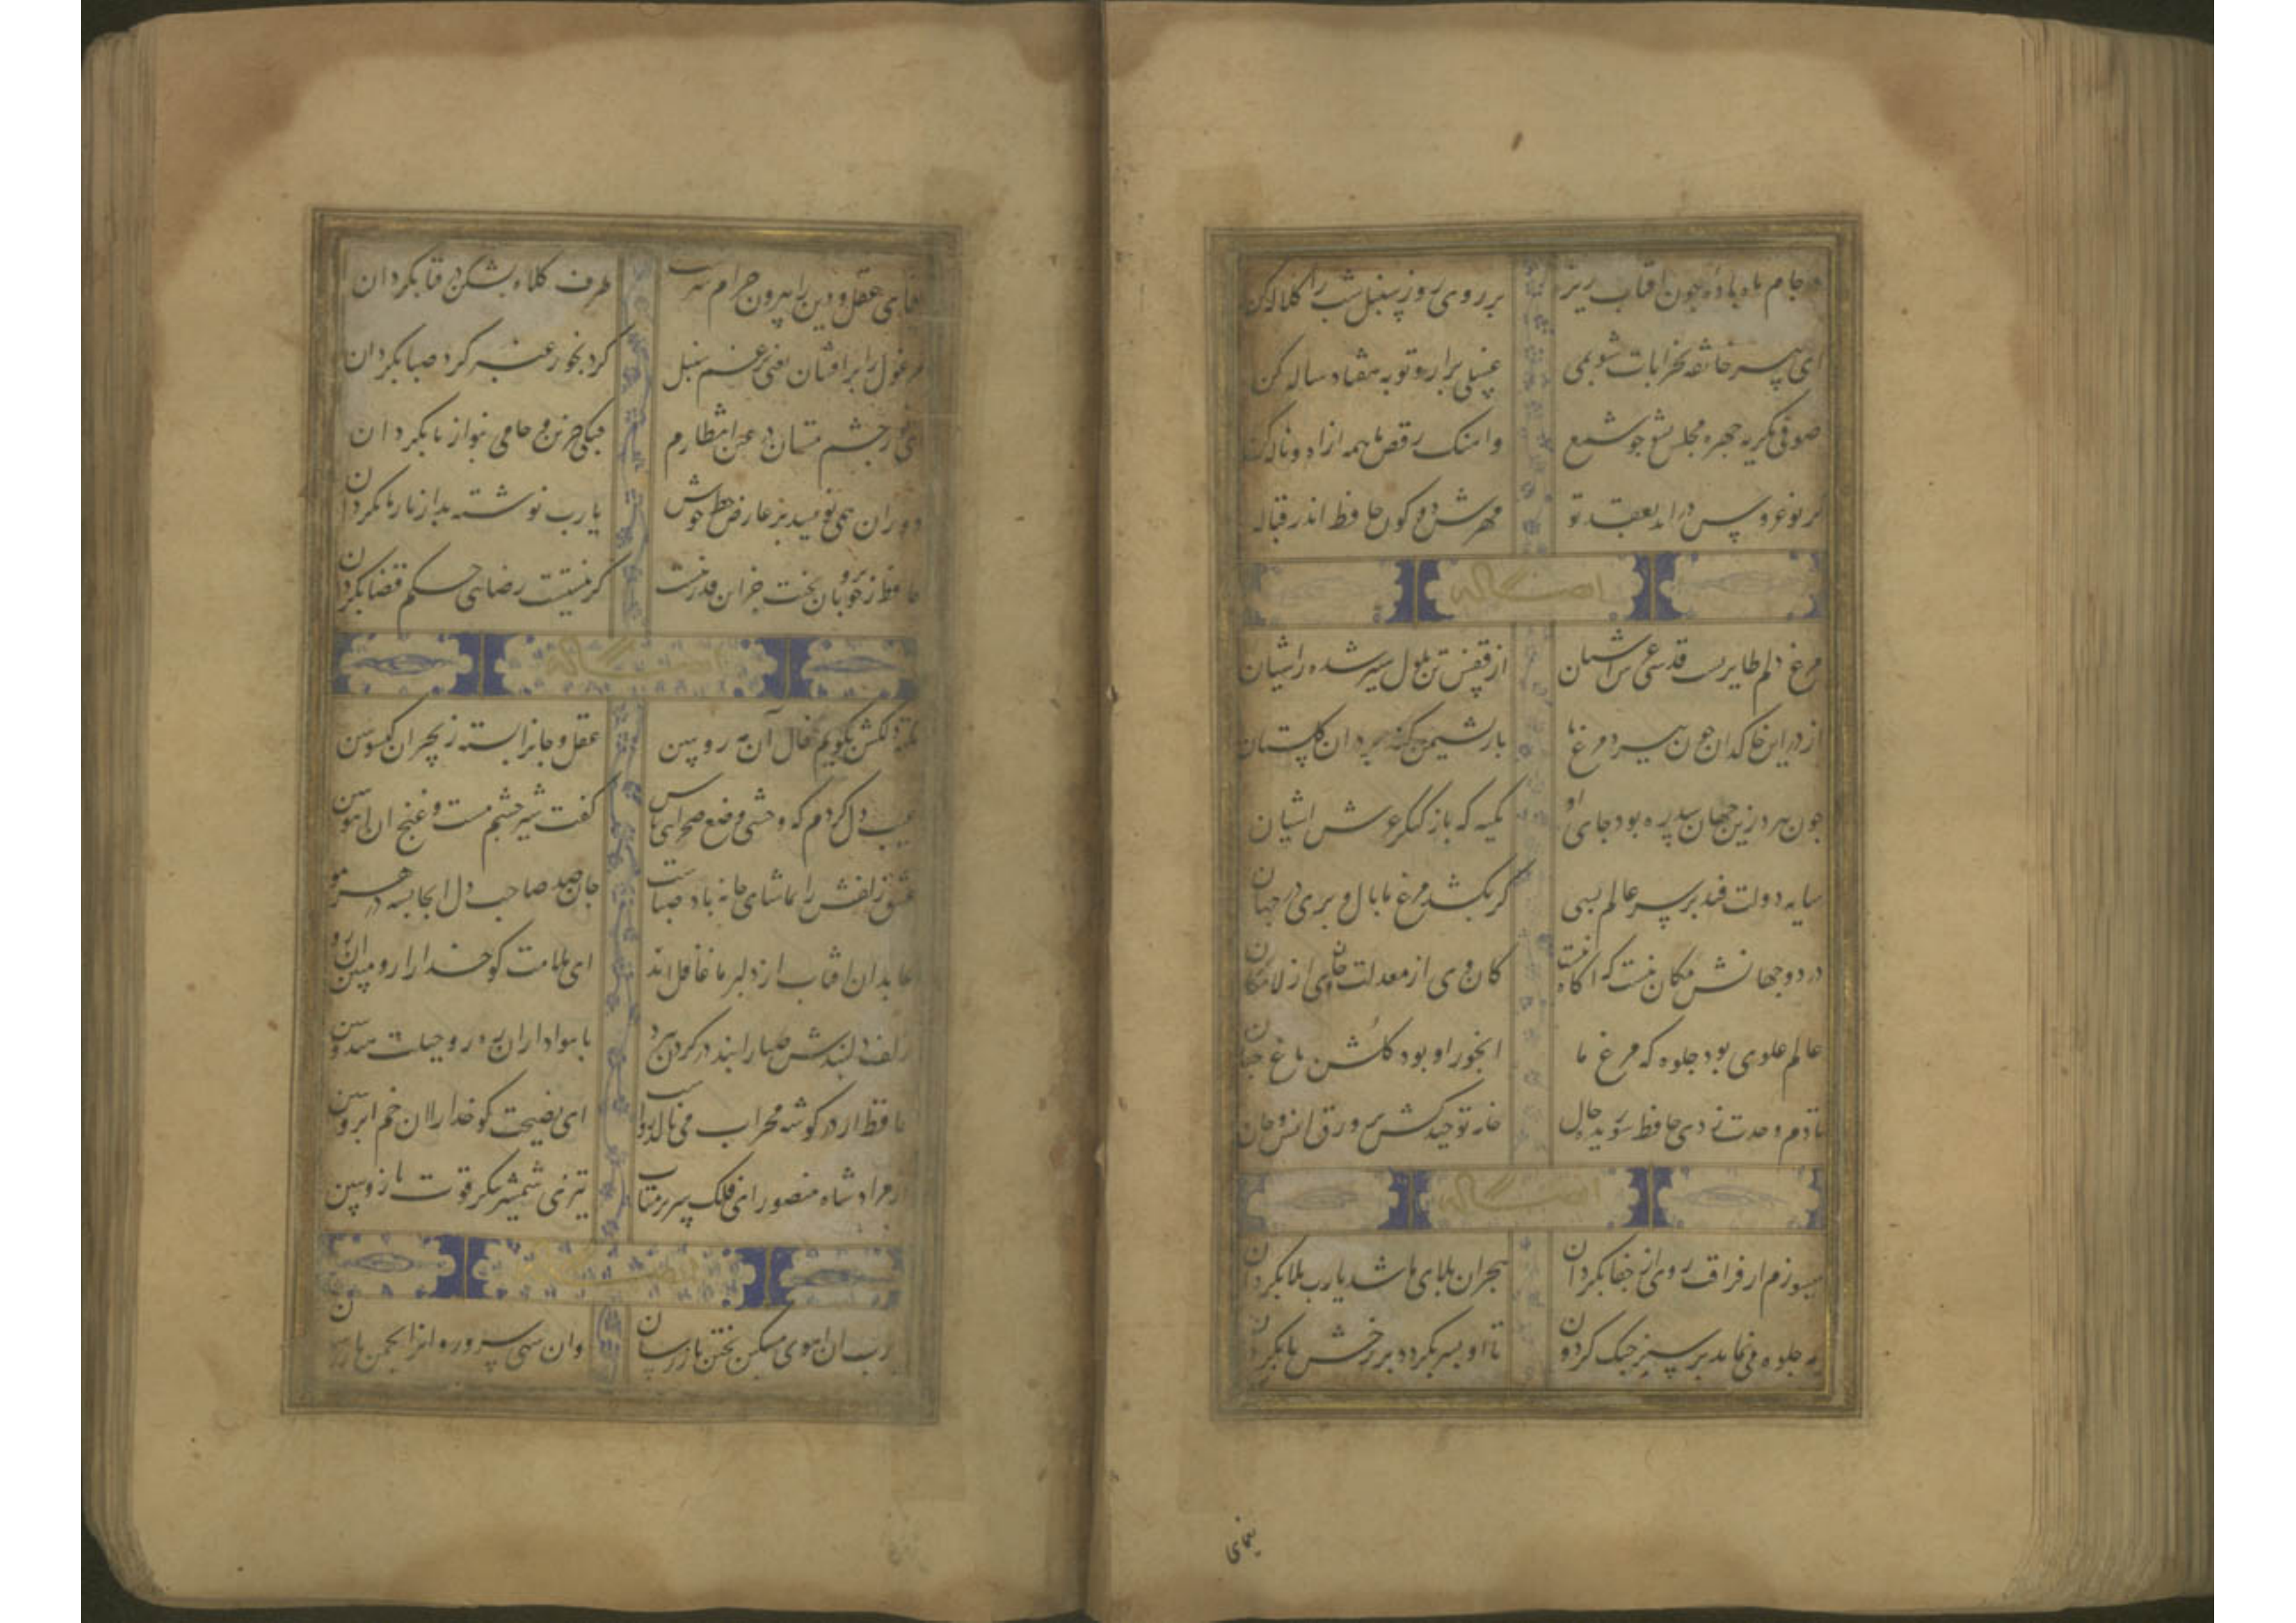 در جام ماه باده چون افتاب ریز بر روی روز سنبل شب را کلاله کن
ای پیر خانقه بخرابات شو دمی غسلی برار و توبه هفتاد ساله کن
صوفی بگریه چهره مجلس بشو چو شمع واهنگ رقص ما همه از آه و ناله کن
گر نوعروس در اید بعقد تو مهرش دو کون حافظ اندر قباله
مرغ دلم طایریست قدسی عرش اشیان از قفس تن ملول سیر شده از جهان
از در این خاکدان چون بپرد مرغ ما باز نشیمن کند بر در ان گلستان
چون بپرد زین جهان سدره بود جای او تکیه که باز کنگره عرش اشیان
سایه دولت فتد بر سر عالم بسی گر بکشد مرغ ما بال و پری در جهان
در دو جهانش مکان نیست که اگاه نیست کان وی از معدلت جای از لامکان
عالم علوی بود جلوه که مرغ ما ابخور او بود گلشن باغ جنان
تا دم وحدت زدی حافظ شوریده حال خامه توحید کش بر ورق انس و جان
میسوزم از فراقت روی از جفا بگردان هجران بلای ما شد یارب بلا بگردان
مه جلوه می نماید بر سبز خنگ گردون تا او بسر بگردد بر رخش پا بگردان
یغمای
یغمای عقل و دین را بیرون خرام سرمست طرف کلاه بشکن قبا بگردان
مرغول را برافشان یعنی برغم سنبل گرد بخور عنبر گرد صبا بگردان
ای نور چشم مستان در عین انتظارم چنگی حزین و جامی بنواز یا بگردان
دوران همی نویسد بر عارض خطی خوش یارب نوشته بد از یار ما بگردان
حافظ ز خوبرویان بخت جز این قدر نیست گر نیستت رضایی حکم قضا بگردان
نکته دلکش بگویم خال آن مه رو ببین عقل و جانرا بسته زنجیر ان گیسو ببین
عیب دل کردم که وحشی وضع صحرایی مباش گفت شیر چشم مست و غنج ان اهو ببین
عشق زلفش را تماشای خانه باد صباست جان صد صاحب دل انجا بسته در هر مو
عابدان افتاب از دلبر ما غافل اند ای ملامت گو خدا را رو مبین ان رو
زلف دلبندش صبا را بند در گردن نهد با هواداران ره رو حیلت هندو ببین
حافظ ار در گوشه محراب می نالد رواست ای نصیحت گو خدا را ان خم ابرو ببین
از مراد شاه منصور ای فلک سر بر متاب تیزی شمشیر بنگر قوت بازو ببین
یارب ان اهوی مشکین بختن باز رسان وان سهی سرو روانرا بچمن باز رسان